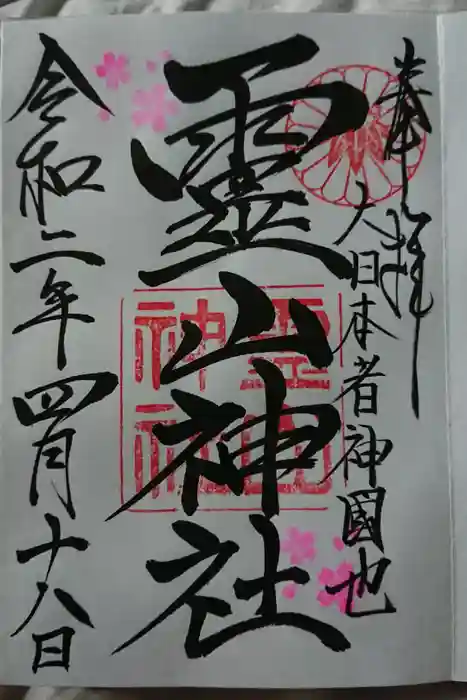 奉拝
大日本者神國也
靈山神社
令和二年四月十八日
靈山
神社